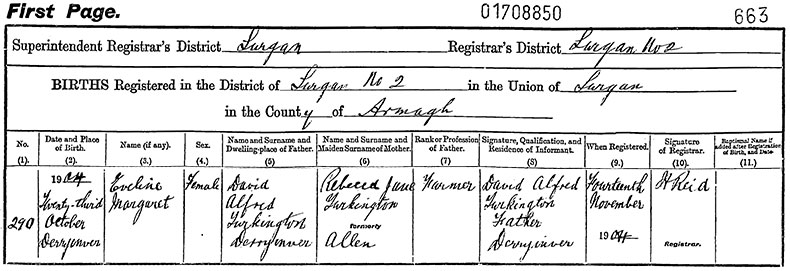 First Page. 01708850 663
Superintendent Registrar's District Lurgan Registrar's District Lurgan No 2
BIRTHS Registered in the District of Lurgan No 2 in the Union of Lurgan
in the County of Armagh
No. Date and Place of Birth Name (if any). Sex. Name and Surname and Dwelling-place of Father. Name and Surname and Maiden Surname of Mother. Rank or Profession of Father. Signature, Qualification, and Residence of Informant. When Registered. Signature of Registrar. Baptismal Name if added after Registration of Birth, and Date.
(1). (2.) (3.) (4.) (5) (6) (7) (8) (9.) (10.) (11.)
1904 Eveline Female David Rebecca Jane Farmer David Alfred Fourteenth H Reid
Twenty-third Margaret Alfred Turkington Turkington November
290 October Turkington formerly Father
Derryinver Derryinver Allen Derryinver 1904 Registrar.